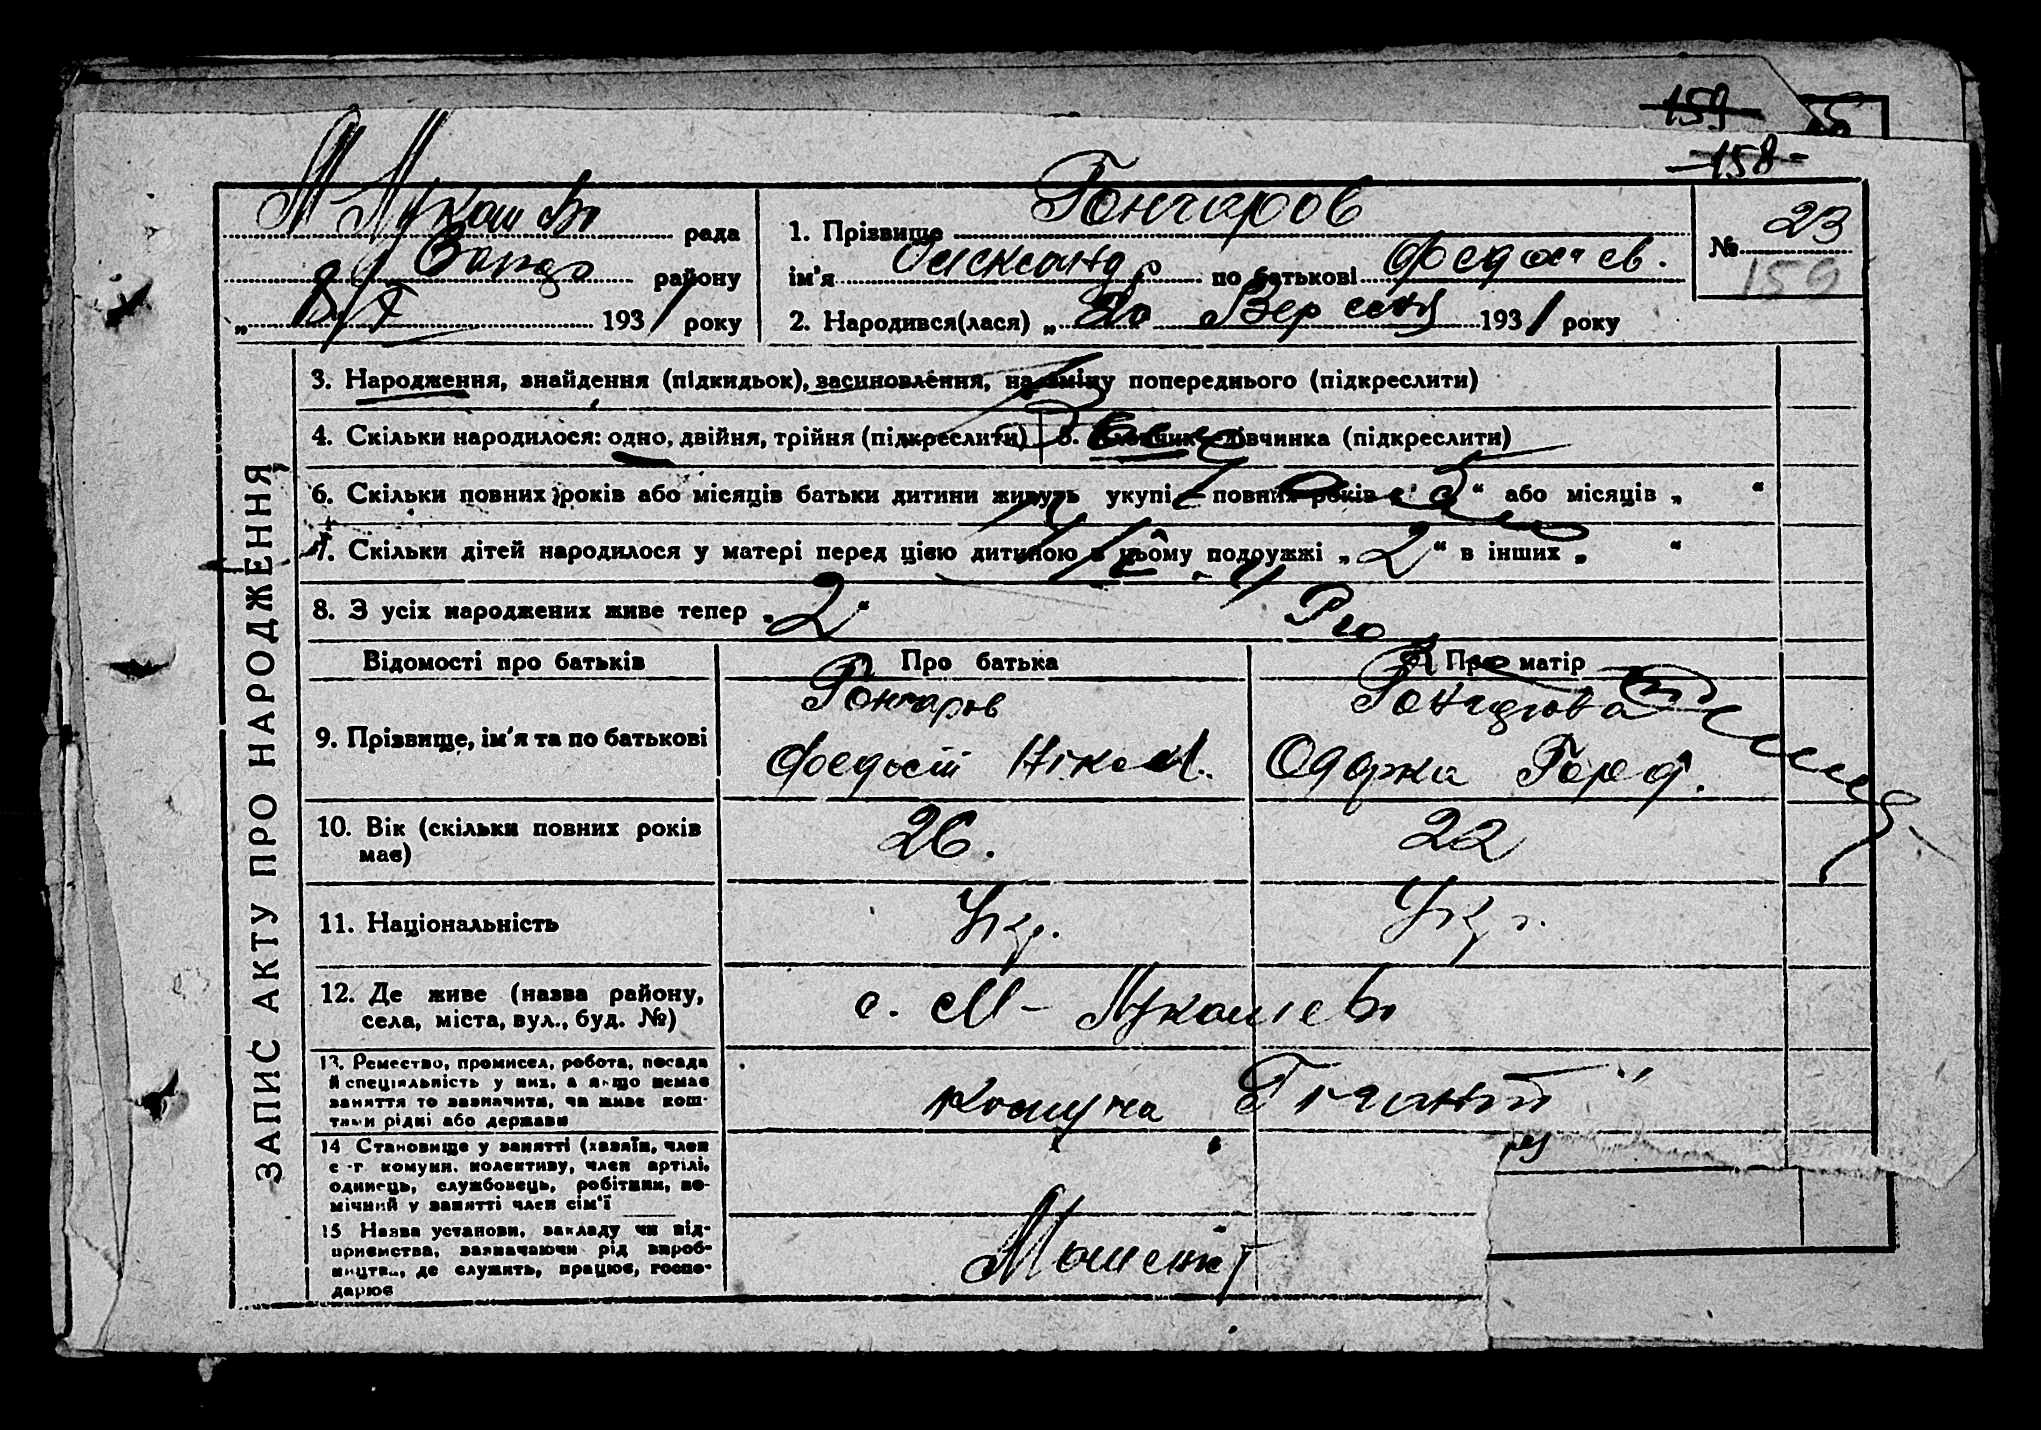 159
158-
М Лукашево рада
району
193 1 року
1. Прізвище Гончаров
ім'я Олександр по батькові Федосієв.
№ 23
159
2. Народився(лася) „ 20 Вересня 193 1 року
ЗАПИС АКТУ ПРО НАРОДЖЕННЯ
3. Народження, знайдення (підкидьок), засиновлення, на зміну попереднього (підкреслити)
4. Скільки народилося: одно, двійня, трійня (підкреслити) 5. Хлопчик дівчинка (підкреслити)
6. Скільки повних років або місяців батьки дитини живуть укупі повних років „ “ або місяців „ “
7. Скільки дітей народилося у матері перед цією дитиною в цьому подружжі „ 2 “ в інших „ “
8. З усіх народжених живе тепер „ 2 “
Відомості про батьків Про батька Про матір
9. Прізвище, ім'я та по батькові
Гончаров Гончарова
Федосій Одарка
10. Вік (скільки повних років має) 26. 22
11. Національність Укр. Укр.
12. Де живе (назва району, села, міста, вул., буд. №) с. М-Лукашево
13. Ремество, промисел, робота, посада
й спеціяльність у них, а якщо немає
заняття то зазначити, чи живе кош-
тами рідні або держави
комуна Гігант"
14 Становище у занятті (хазяїн, член
с.-г. комуни, колективу, член артілі,
одинець, службовець, робітник, по-
мічний у занятті член сім'ї
15 Назва установи, закладу чи під-
приємства, зазначаючи рід вироб-
ництва, де служить, працює, госпо-
дарює